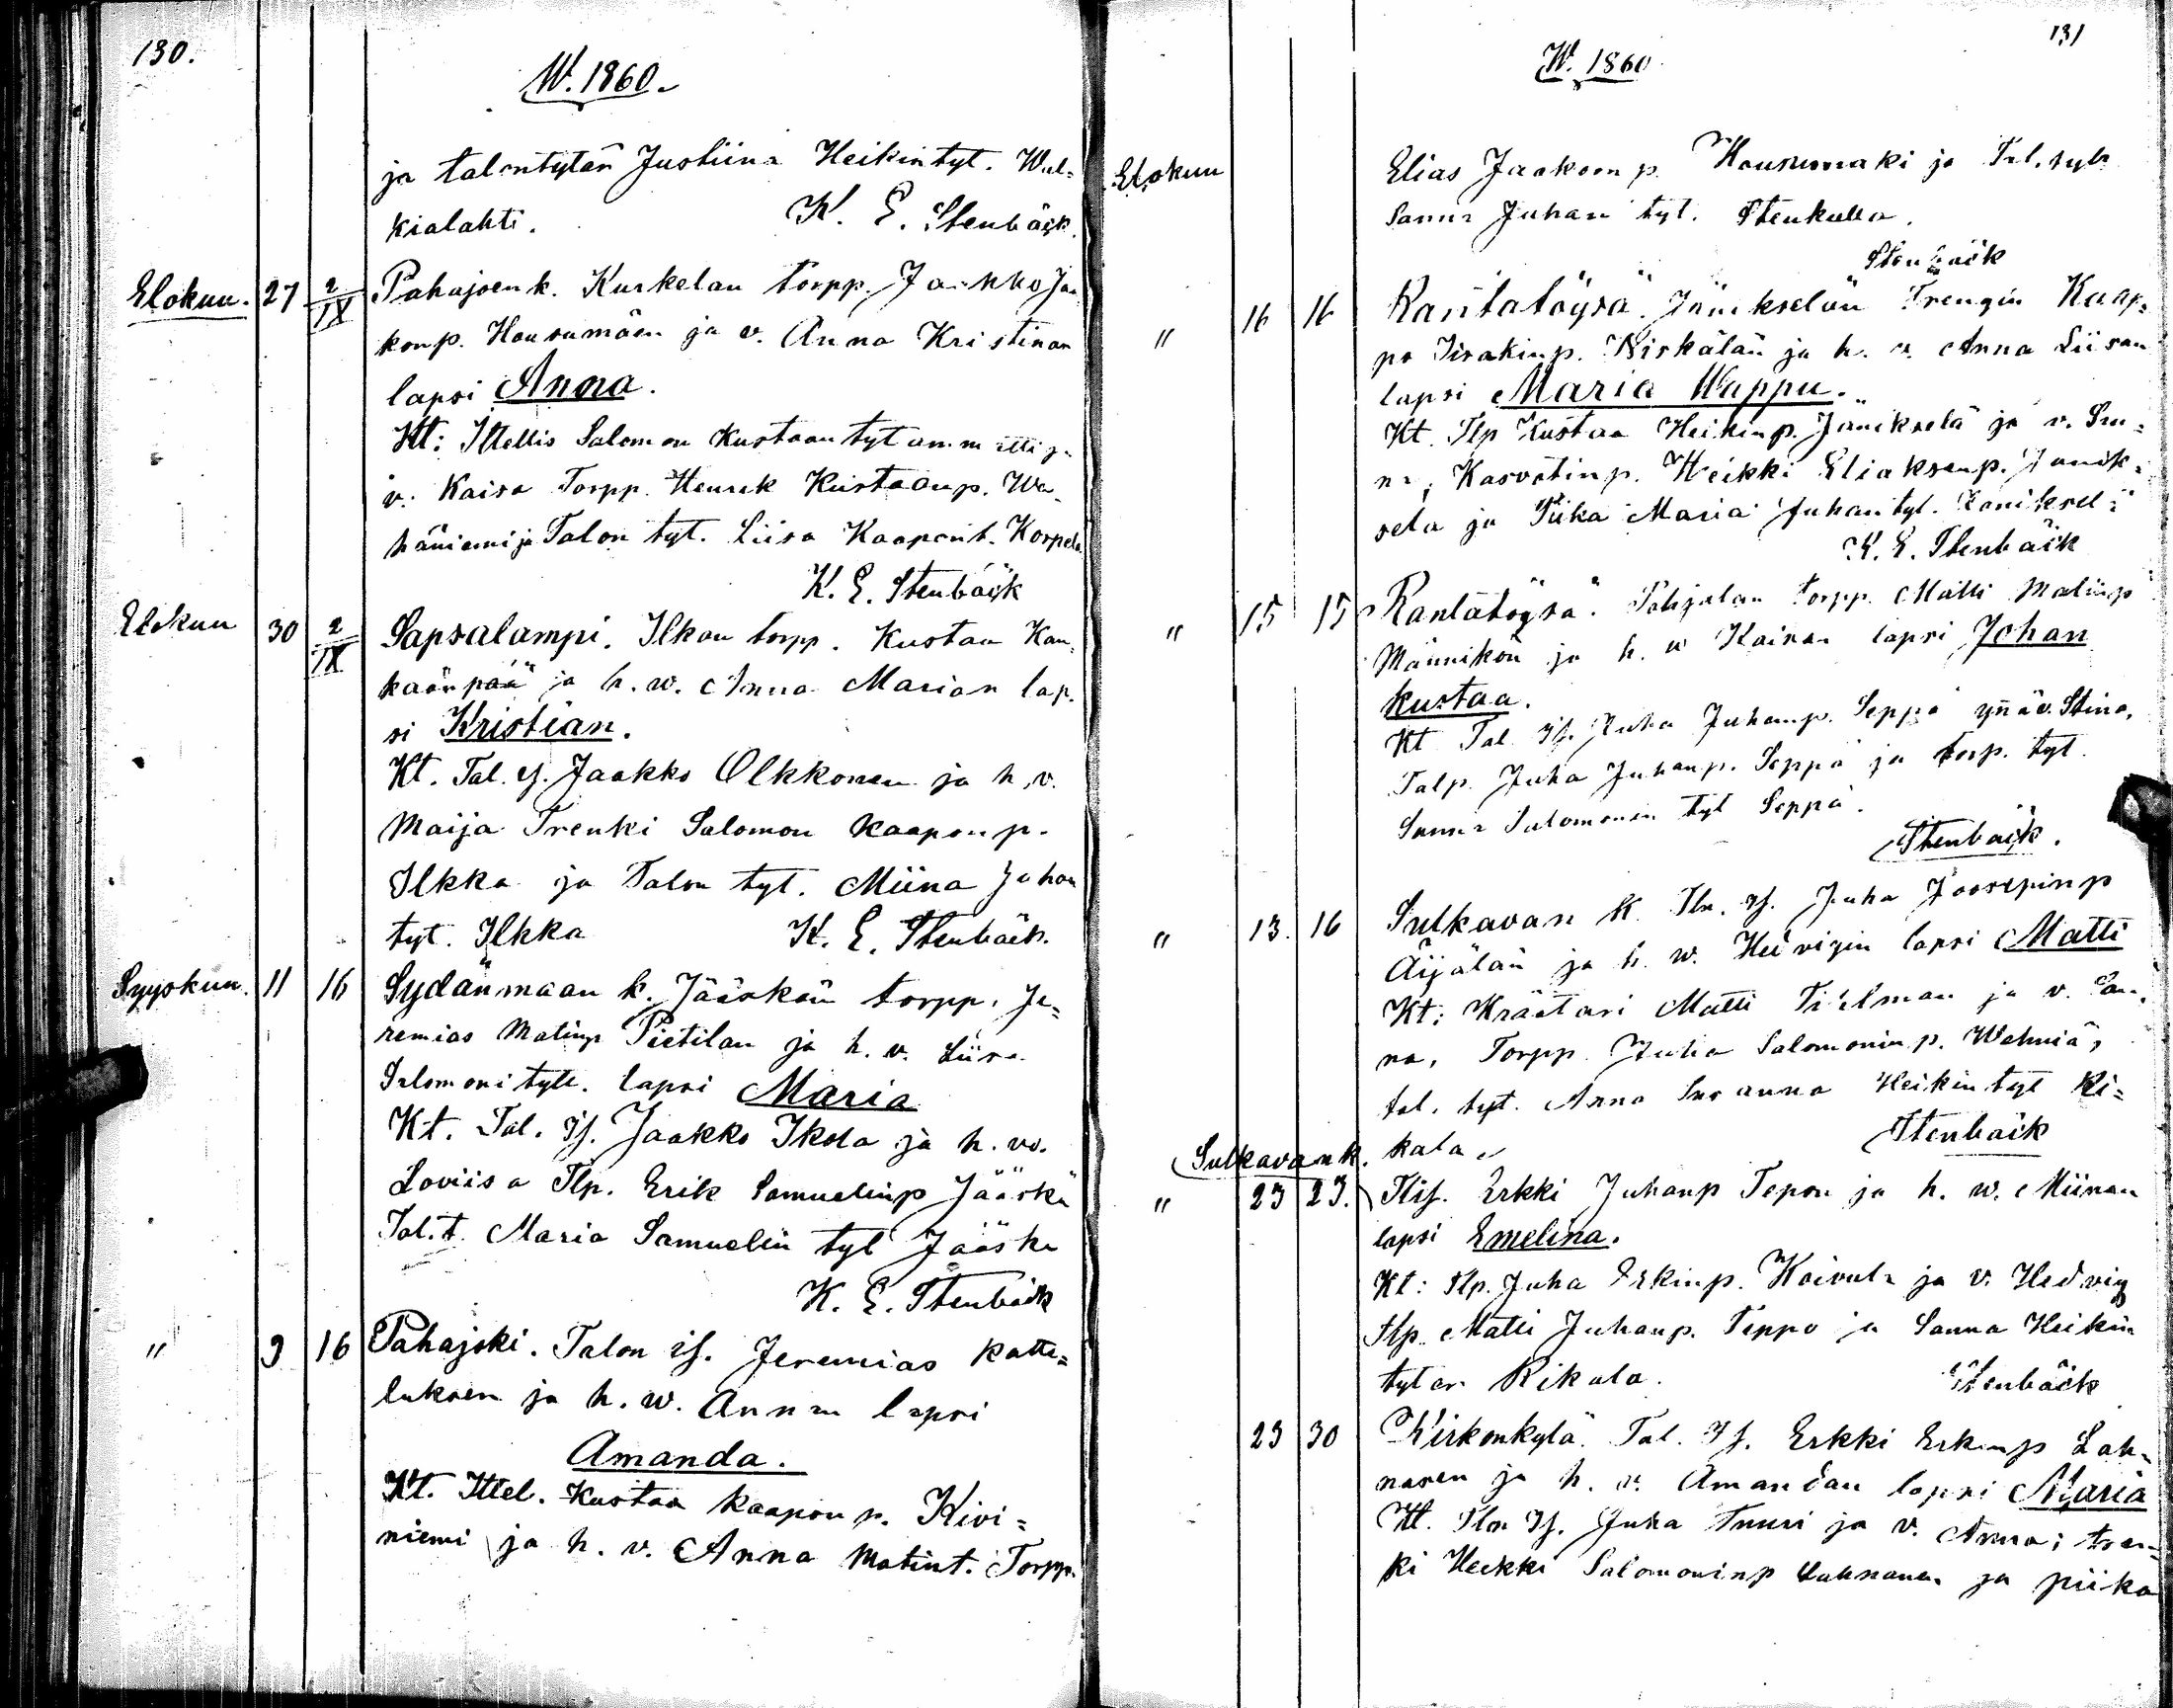 130.
W. 1860.
ja talontytän Justiina Heikintyt. Wal=
kialahti. K. E. Stenbäck.
Elokuu. 27 2/IX Pahajoen k. Kurkelan torpp. Jaakko Jaa
konp. Housumäen ja v. Anna Kristinan
lapsi Anna.
Kt: Ittellis Salomon Kustaan
v. Kaisa Torpp. Henrik Kustaanp. Wä
häniemi ja Talon tyt. Liisa Kaapont. Korpela
K. E. Stenbäck
Elokuu 30 2/IX Sapsalampi. Ilkan torpp. Kustaa Kan
kaänpää ja h. w. Anna Marian lap
si Kristian.
Kt. Tal. ij. Jaakko Olkkonen ja h. v.
Maija Trenki Salomon Kaaponp.
Ilkka ja Talon tyt. Miina Juhan
tyt. Ilkka K. E. Stenbäck.
Syyskuu. 11 16 Sydänmaan k. Jääskän torpp. Je=
remias Matinp Pietilan ja h. v. Liisa
Salomonityt. lapsi Maria
Kt. Tal. Is. Jaakko Ikola ja h. w.
Loviisa Tlp. Erik Samuelinp Jääskä
Tal. t. Maria Samuelin tyt Jääskä
K. E. Stenbäck
" 9 16 Pahajoki. Talon is. Jeremias Katte=
luksen ja h. w. Annan lapsi
Amanda.
Kt. Ittel. Kustaa Kaapon p. Kivi=
niemi ja h. v. Anna Matint. Torpp.
131
W. 1860
Elokuu Elias Jaakon p. Housumaki ja Tal. tytr
Sanna Juhan tyt. Stenkulla.
Stenbäck
" 16 16 Rantatöysä. Jänikselän Trengin Kaap=
po Iisakinp. Kiskälän ja h. v. Anna Liisan
lapsi Maria Wappu.
Kt. Tlp Kustaa Heikinp. Jänikselä ja v. San=
na, Kasvatinp. Heikki Eliaksenp. Jänik=
sela ja Piika Maria Juhantyt. Janikselä
K. E. Stenbäck
" 15 15 Rantatöysä. Pohjalan torpp. Matti Matinp
Männikön ja h. w Kaisan lapsi Johan
Kustaa.
Kt Tal Is. Juha Juhanp. Seppä ynä v. Stina,
Talp. Juha Juhanp. Seppä ja torp. tyt.
Sanna Salomonin tyt Seppä.
Stenbäck.
" 13. 16 Sulkavan K. Tln. Is. Juha Joosepinp
Äijälän ja h. w. Hedvigin lapsi Matti
Kt: Kräätari Matti ja v. San=
na, Torpp. Juha Salomonin p. Wehniä,
tal. tyt. Anna Susanna Heikin tyt Ri=
kala. Stenbäck
Sulkavan k.
" 23 23. Tlis. Erkki Juhanp Tepon ja h. w. Miinan
lapsi Emelina.
Kt: Tlp. Juha Erkinp. Koivula ja v. Hedvig
Tlp. Matti Juhanp. Teppo ja Sanna Heikin
tytär Rikala. Stenbäck
23 30 Kirkonkylä. Tal. Is. Erkki Erkinp Lah=
nasen ja h. v. Amandan lapsi Maria
Kt. Tln Is. Juha Tuuri ja v. Anna; tren=
ki Heikki Salomoninp Lahnanen ja piika